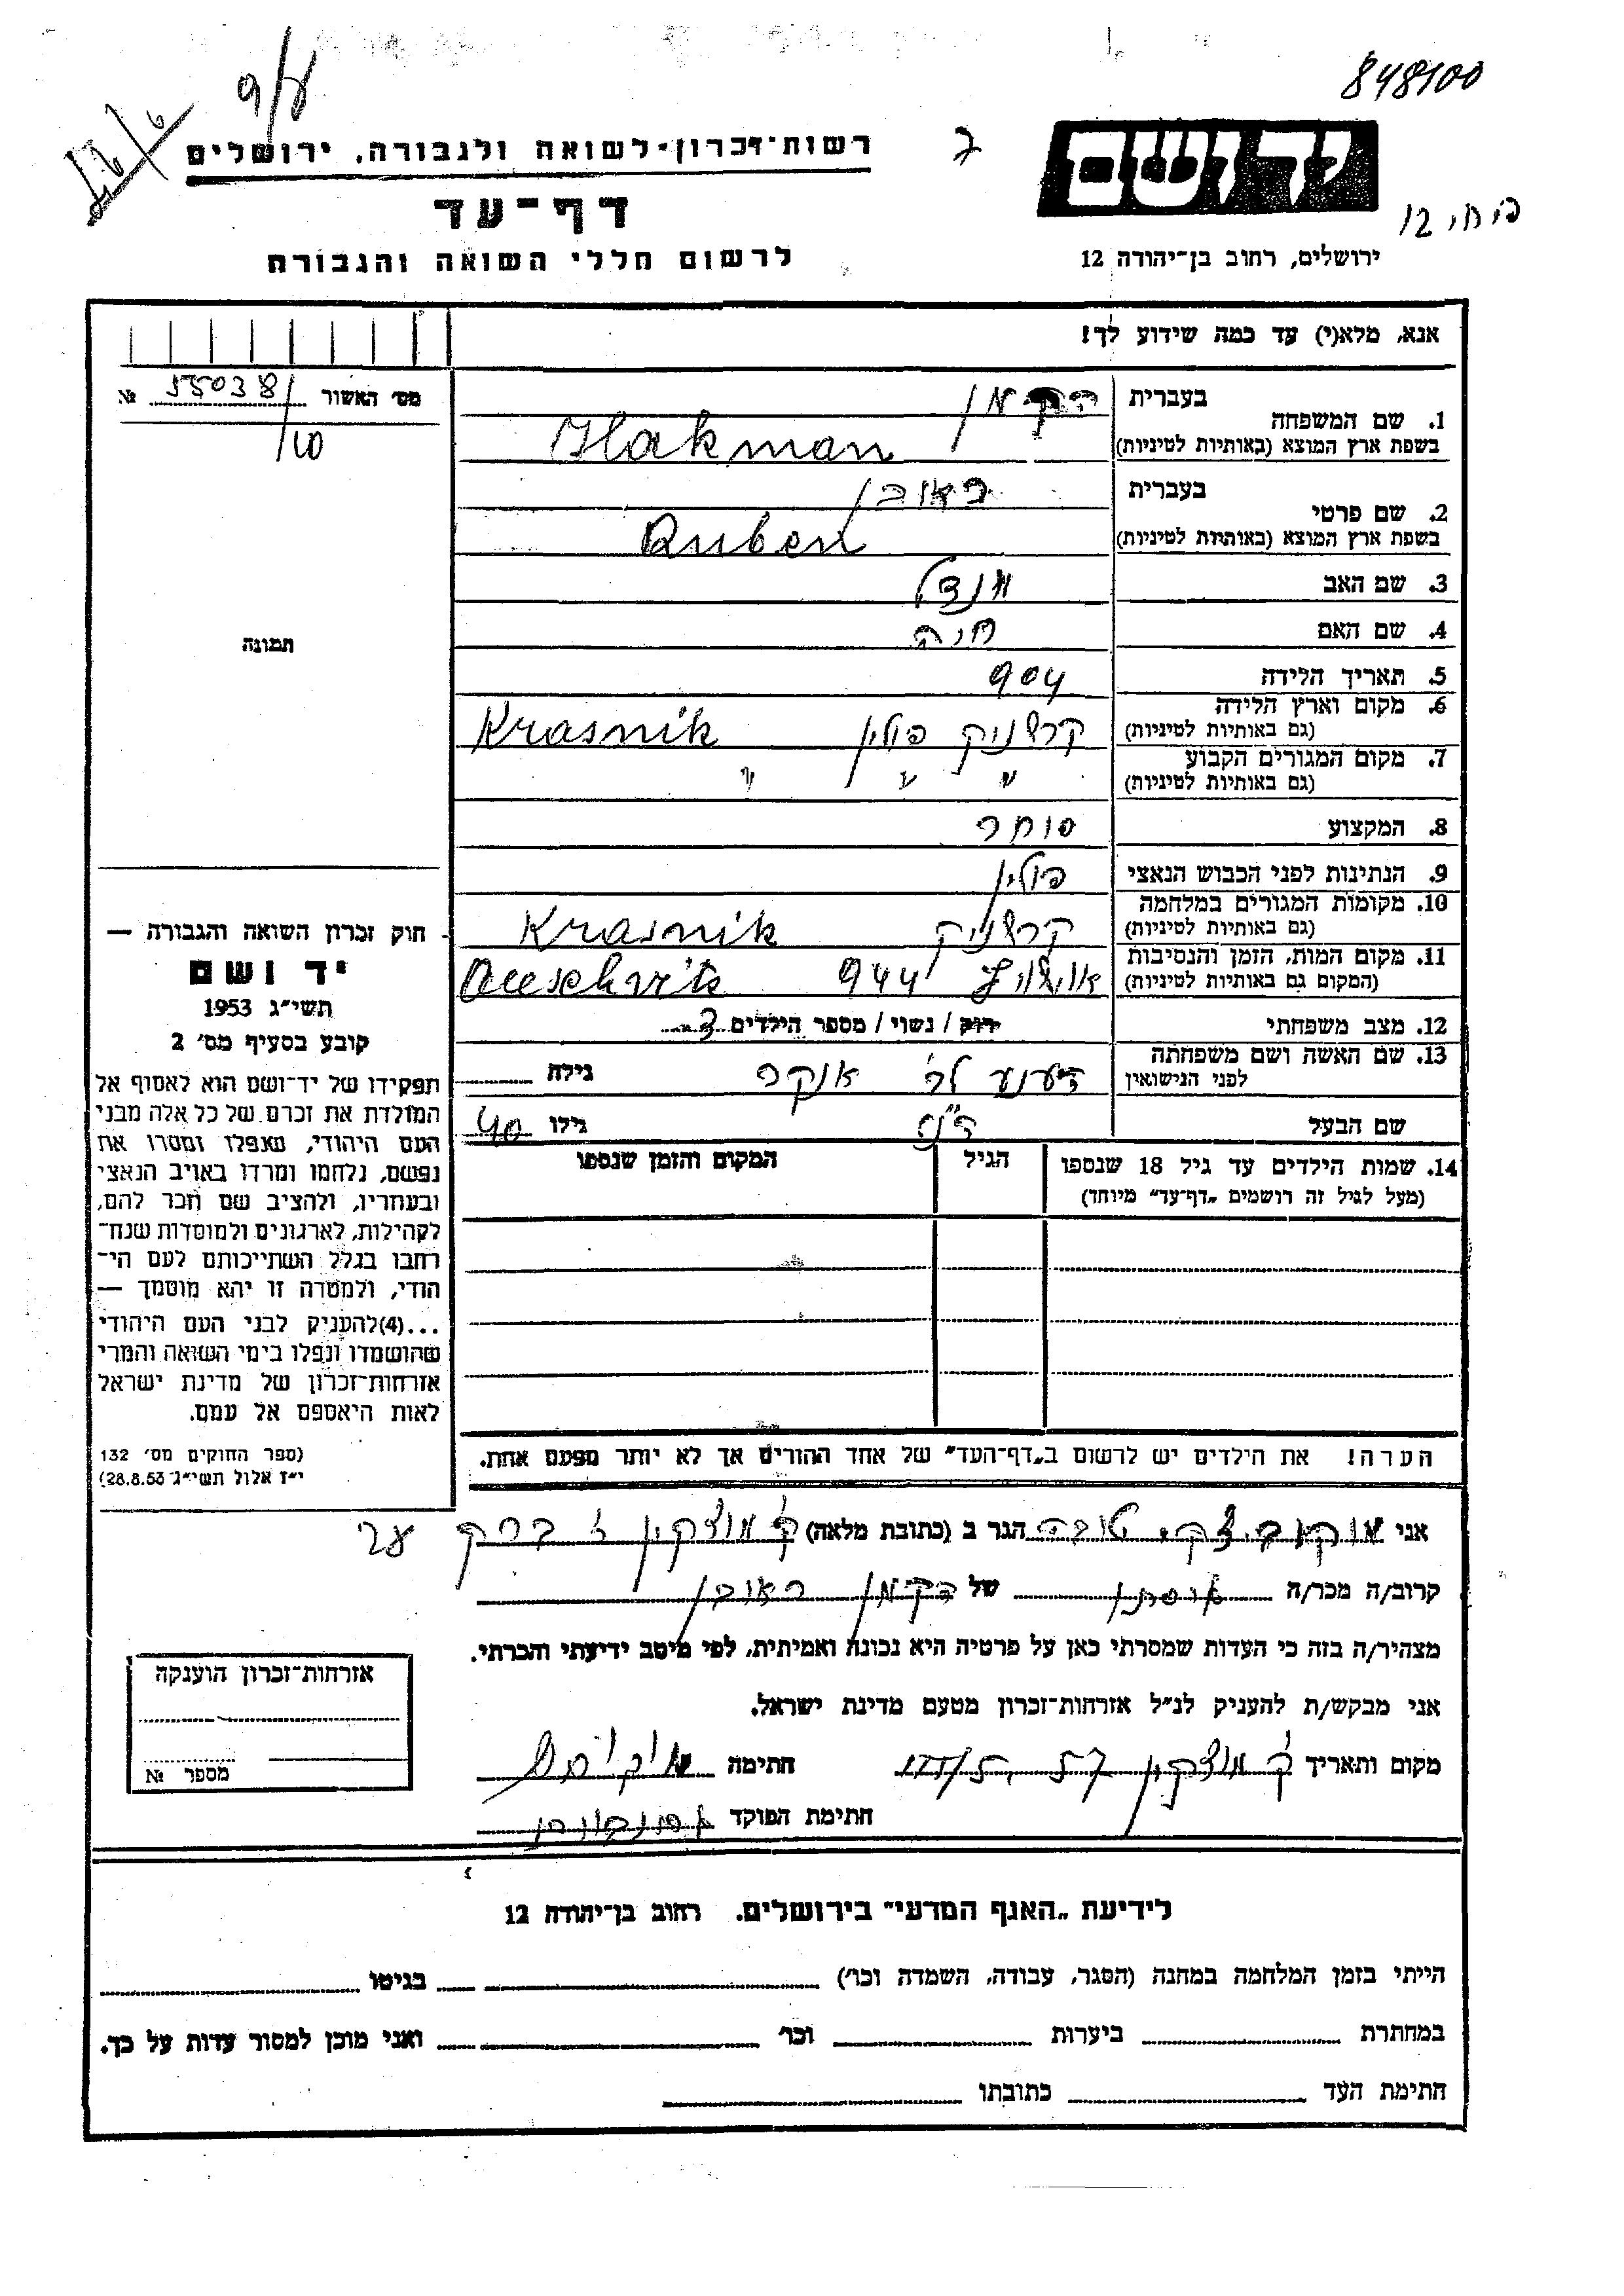 848100
יד ושם
רשות־זכרון לשואה ולגבורה, ירושלים
דף־עד
לרשום חללי השואה והגבורה
ירושלים, רחוב בן־יהודה 12
אנא, מלא(י) עד כמה שידוע לך!
מס׳ האשור 55038/ №
10
תמונה
1. שם המשפחה
בעברית הקמן
בשפת ארץ המוצא (באותיות לטיניות) Hakman
2. שם פרטי
בעברית ראובן
בשפת ארץ המוצא (באותיות לטיניות) Ruben
3. שם האב מנדל
4. שם האם חנה
5. תאריך הלידה 904
6. מקום וארץ הלידה
(גם באותיות לטיניות) קרשניק פולין Krasnik
7. מקום המגורים הקבוע
(גם באותיות לטיניות) " " "
8. המקצוע סוחר
9. הנתינות לפני הכבוש הנאצי פולין
10. מקומות המגורים במלחמה
(גם באותיות לטיניות) קרשניק Krasnik
11. מקום המות, הזמן והנסיבות
(המקום גם באותיות לטיניות) אושויץ 944 Aueschvits
12. מצב משפחתי רוק / נשוי / מספר הילדים 3
13. שם האשה ושם משפחתה
לפני הנישואין אנקר גילה
שם הבעל הנ"ל גילו 40
14. שמות הילדים עד גיל 18 שנספו
(מעל לגיל זה רושמים „דף־עד״ מיוחד)
הגיל
המקום והזמן שנספו
הערה! את הילדים יש לרשום ב„דף־העד״ של אחד ההורים אך לא יותר מפעם אחת.
חוק זכרון השואה והגבורה —
יד ושם
תשי״ג 1953
קובע בסעיף מס׳ 2
תפקידו של יד־ושם הוא לאסוף אל
המולדת את זכרם של כל אלה מבני
העם היהודי, שנפלו ומסרו את
נפשם, נלחמו ומרדו באויב הנאצי
ובעוזריו, ולהציב שם וזכר להם,
לקהילות, לארגונים ולמוסדות שנח־
רחבו בגלל השתייכותם לעם הי־
הודי, ולמטרה זו יהא מוסמך —
...(4)להעניק לבני העם היהודי
שהושמדו ונפלו בימי השואה והמרי
אזרחות־זכרון של מדינת ישראל
לאות היאספם אל עמם.
(ספר החוקים מס׳ 132
י״ז אלול תשי״ג 28.8.53)
אני טובה הגר ב (כתובת מלאה) ק. מוצקין ז. ברק
קרוב/ה מכר/ה של הקמן ראובן
מצהיר/ה בזה כי העדות שמסרתי כאן על פרטיה היא נכונה ואמיתית, לפי מיטב ידיעתי והכרתי.
אני מבקש/ת להעניק לנ״ל אזרחות־זכרון מטעם מדינת ישראל.
מקום ותאריך ק. מוצקין חתימה
חתימת הפוקד
אזרחות־זכרון הוענקה
מספר №
לידיעת „האגף המדעי״ בירושלים. רחוב בן־יהודה 12
הייתי בזמן המלחמה במחנה (הסגר, עבודה, השמדה וכו׳) בגיטו
במחתרת ביערות וכו׳ ואני מוכן למסור עדות על כך.
חתימת העד כתובתו